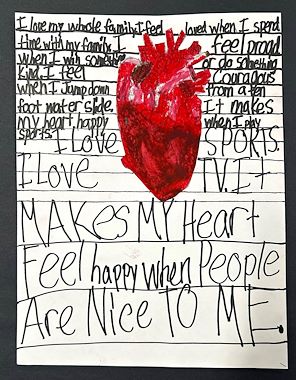 I love my whole family. I feel loved when I spend
time with my family. I feel proud
when I win something or do something
kind. I feel Courageous
when I Jump down from a ten
foot water slide. It makes
my heart happy when I play
sports. I Love SPORTS.
I Love TV. It
MAKes MY Heart
Feel happy when People
Are Nice TO ME.